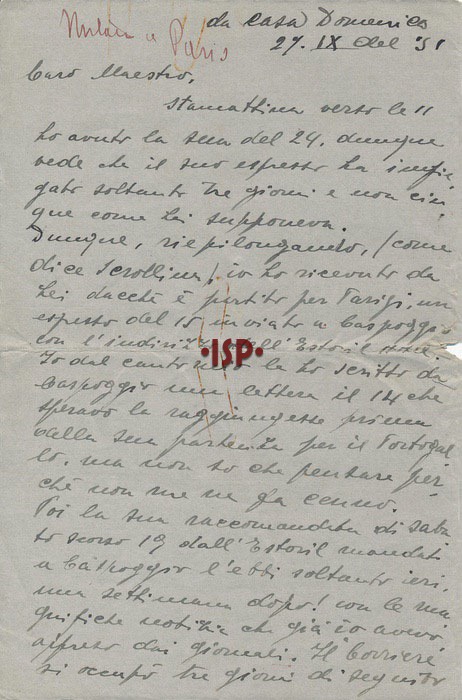 da casa Domenico
27. IX del '31
a Paris
Caro Maestro,
stamattina verso le 11
ho avuto la sua del 24. dunque
vede che il suo espresso ha impie
gato soltanto tre giorni e non cin
que come Lei supponeva.
Dunque, riepilongando, (come
dice Scrollina) io ho ricevuto da
Lei dacchè è partito per Parigi, un
espresso del 15 inviato a Caspoggio
con l'indirizzo dell'Estoril
Io dal canto mio le ho scritto da
Caspoggio una lettera il 14 che
speravo la raggiungesse prima
della sua partenza per il Portogal
lo, ma non so che pensare per
chè non me ne fa cenno.
Poi la sua raccomandata di saba
to scorso 19 dall'Estoril mandata
a Caspoggio l'ebbi soltanto ieri,
una settimana dopo! con le ma
gnifiche notizie che già io avevo
appreso dai giornali. Il Corriere
si occupò tre giorni di seguito
ISP